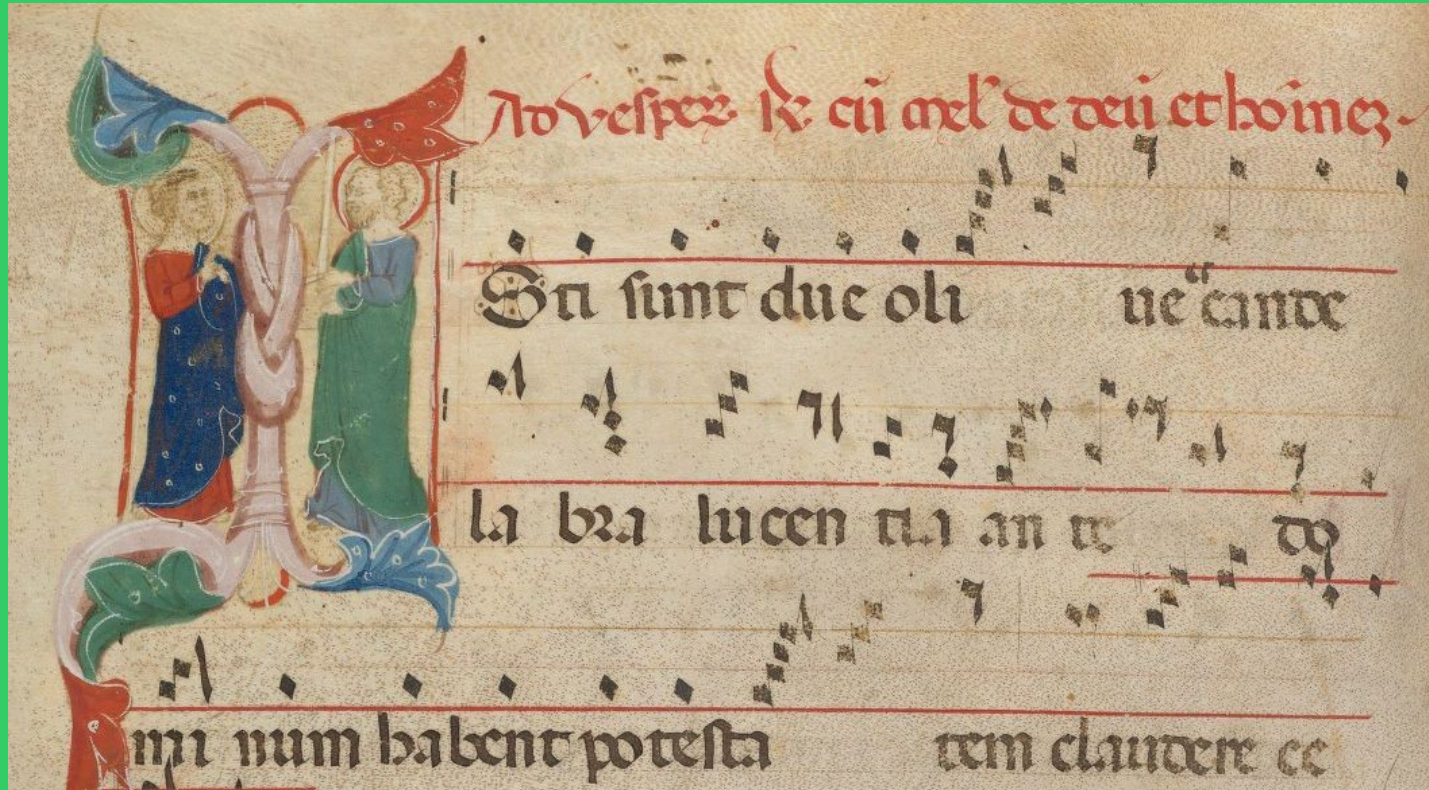 Ad vesper. R. cū mel' de deū et hoīnez.
Isti sunt due oli ue et cande
la bra lucen tia an te do
mi num habent potesta tem claudere ce